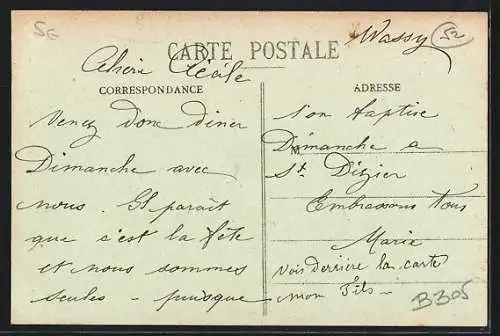 52
Wassy
52
CARTE POSTALE
Chère Cécile
CORRESPONDANCE
Venez donc diner
Dimanche avec
nous. Il parait
que c'est la fête
et nous sommes
seules - puisque
ADRESSE
l'on baptise
M
Dimanche a
St Dizier
Embrassons Tous
Marie
Vois derrière la carte
mon Fils -
B305